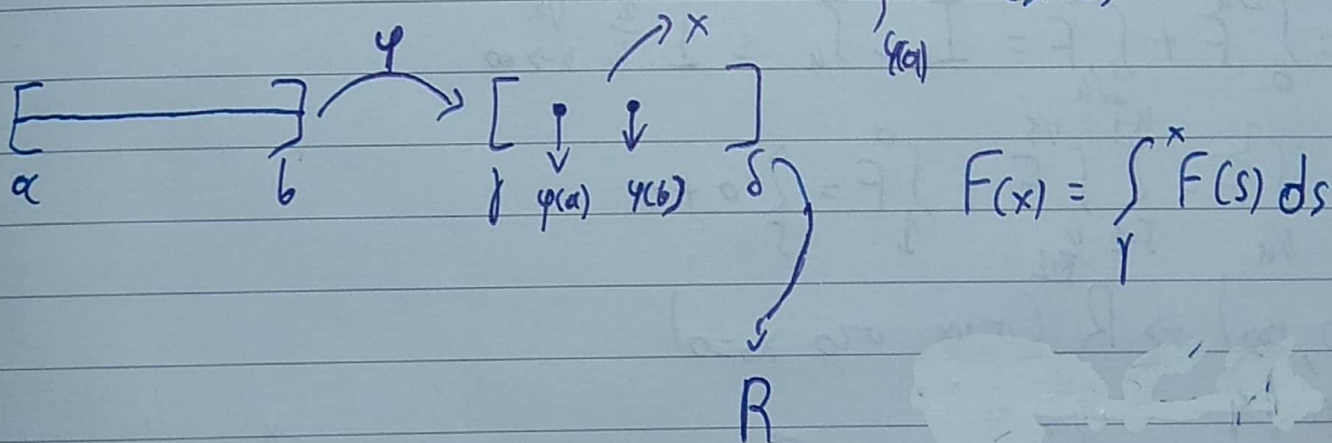 φ(a)
φ x
[ ] [ ]
a b γ φ(a) φ(b) δ F(x) = ∫_γ^x F(s) ds
R